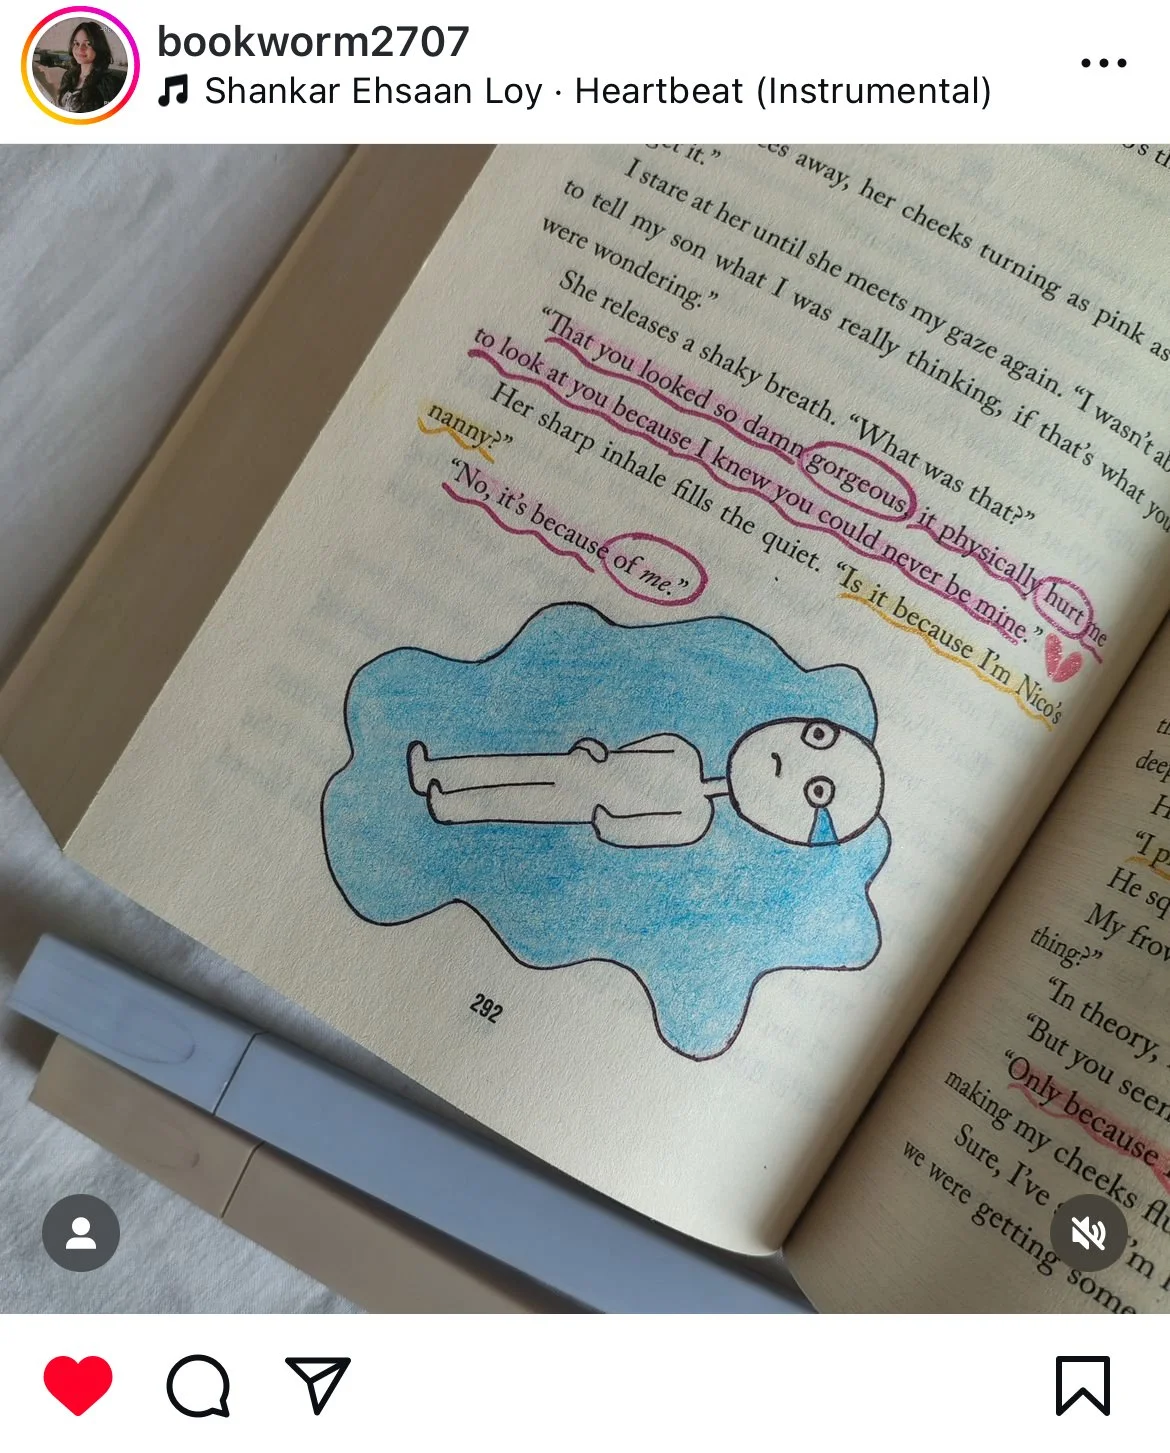 bookworm2707
Shankar Ehsaan Loy · Heartbeat (Instrumental)
it.”
away, her cheeks turning as pink as
I stare at her until she meets my gaze again. “I wasn't
to tell my son what I was really thinking, if that's what you
were wondering.”
She releases a shaky breath. “What was that?”
“That you looked so damn gorgeous, it physically hurt me
to look at you because I knew you could never be mine.”
Her sharp inhale fills the quiet. “Is it because I'm Nico's
nanny?”
“No, it's because of me.”
292
thing?”
“In theory,
“But you
“Only because
making my cheeks
Sure, I've
we were getting some
My
He
“I